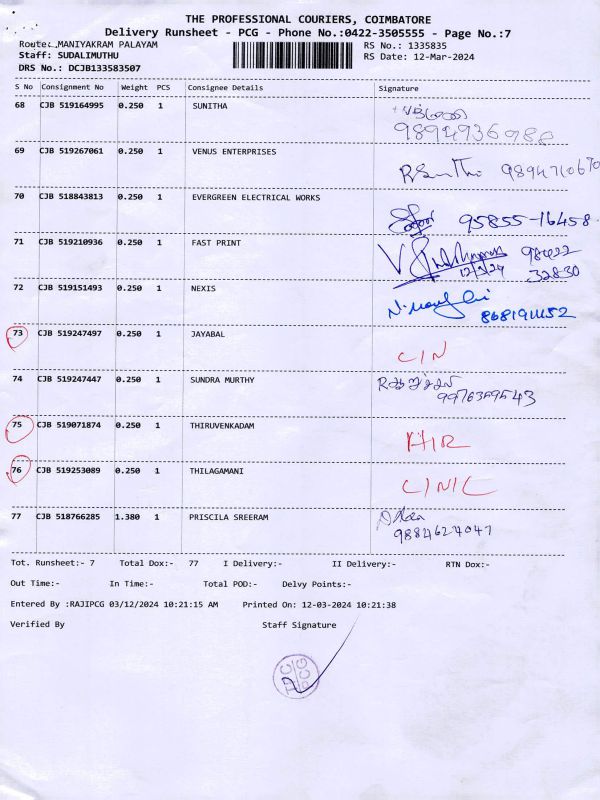 THE PROFESSIONAL COURIERS, COIMBATORE
Delivery Runsheet - PCG - Phone No.:0422-3505555 - Page No.:7
Route: MANIYAKRAM PALAYAM
Staff: SUDALIMUTHU
DRS No.: DCJB133583507
RS No.: 1335835
RS Date: 12-Mar-2024
S No Consignment No Weight PCS Consignee Details Signature
68 CJB 519164995 0.250 1 SUNITHA
69 CJB 519267061 0.250 1 VENUS ENTERPRISES
70 CJB 518843813 0.250 1 EVERGREEN ELECTRICAL WORKS
95855-16458
71 CJB 519210936 0.250 1 FAST PRINT
98422
12/3/24 32830
72 CJB 519151493 0.250 1 NEXIS
73 CJB 519247497 0.250 1 JAYABAL
C/N
74 CJB 519247447 0.250 1 SUNDRA MURTHY
75 CJB 519071874 0.250 1 THIRUVENKADAM
76 CJB 519253089 0.250 1 THILAGAMANI
77 CJB 518766285 1.380 1 PRISCILA SREERAM
9884624047
Tot. Runsheet:- 7 Total Dox:- 77 I Delivery:- II Delivery:- RTN Dox:-
Out Time:- In Time:- Total POD:- Delvy Points:-
Entered By :RAJIPCG 03/12/2024 10:21:15 AM Printed On: 12-03-2024 10:21:38
Verified By Staff Signature